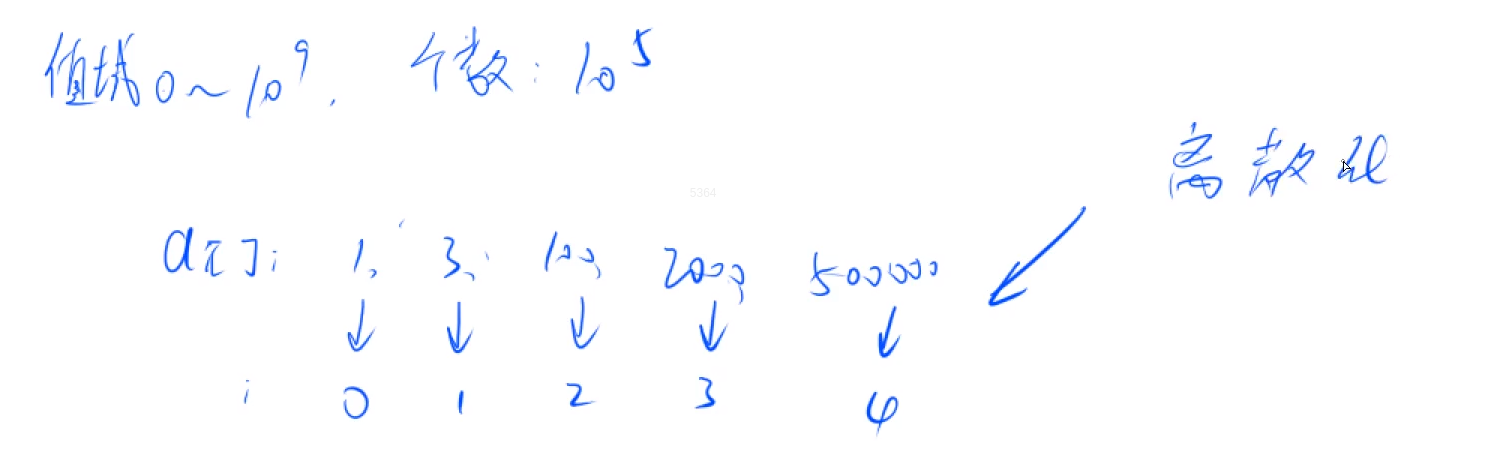 值域 0 ~ 10⁹, 个数: 10⁵
离散化
5364
a[]: 1, 3, 100, 2000, 500000
↓ ↓ ↓ ↓ ↓
i 0 1 2 3 4